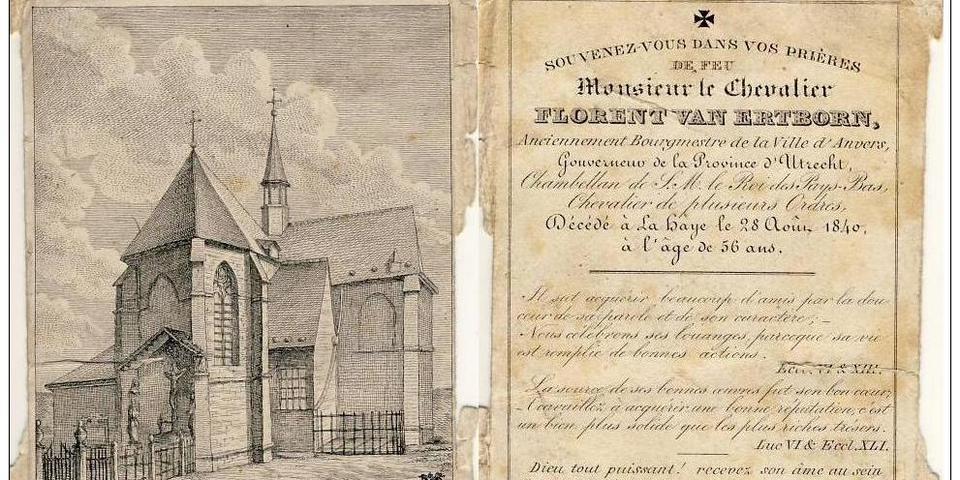 SOUVENEZ-VOUS DANS VOS PRIÈRES
DE FEU
Monsieur le Chevalier
FLORENT VAN ERTBORN,
Anciennement Bourgmestre de la Ville d'Anvers,
Gouverneur de la Province d'Utrecht,
Chambellan de S. M. le Roi des Pays-Bas,
Chevalier de plusieurs Ordres,
Décédé à La Haye le 28 Août 1840,
à l'âge de 56 ans.
Il sut acquérir beaucoup d'amis par la dou-
ceur de sa parole et de son caractère; —
Nous célébrons ses louanges parceque sa vie
est remplie de bonnes actions.
Eccl. VI & XIII.
La source de ses bonnes œuvres fut son bon cœur,
Travaillez à acquérir une bonne réputation, c'est
un bien plus solide que les plus riches trésors.
Luc VI & Eccl. XLI.
Dieu tout puissant! recevez son âme au sein